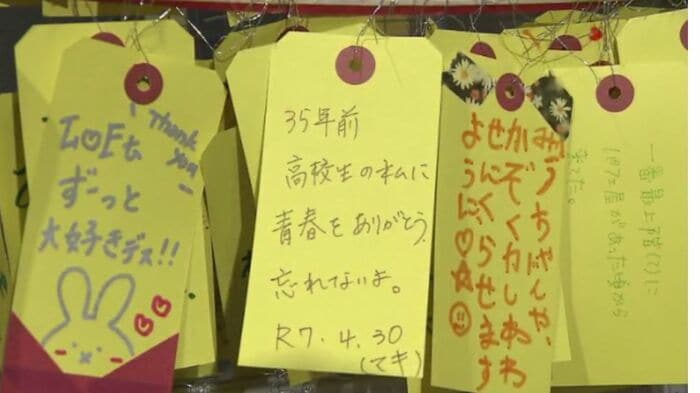 Thank
you
ずーっと
大好きデス!!
35年前
高校生の私に
青春をありがとう。
忘れないよ。
R7.4.30
(マキ)
みうちゃんが、
かぞくかしあわ
せにくらせます
ように♡☆
一番最上階(?)に
があった頃から
来てた。